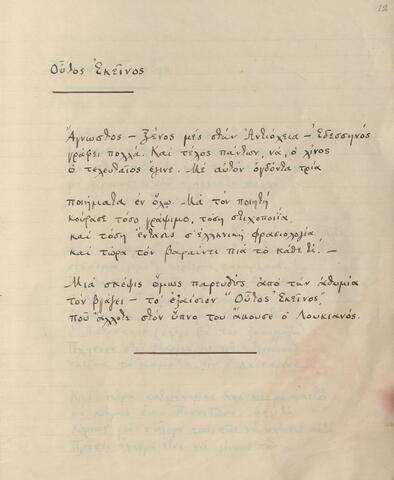 12
Οὗτος Ἐκεῖνος
Ἄγνωστος — ξένος μὲς στὴν Ἀντιόχεια — Ἐδεσσηνὸς
γράφει πολλά. Καὶ τέλος πάντων, νά, ὁ λίνος
ὁ τελευταῖος ἔγινε. Μὲ αὐτὸν ὀγδόντα τρία
ποιήματα ἐν ὅλῳ. Μὰ τὸν ποιητὴ
κούρασε τόσο γράψιμο, τόση στιχοποιΐα,
καὶ τόση ἔντασις σ' ἑλληνικὴ φρασιολογία
καὶ τώρα τὸν βαραίνει πιὰ τὸ κάθε τί. —
Μιὰ σκέψις ὅμως παρευθὺς ἀπὸ τὴν ἀθυμία
τὸν βγάζει — τὸ ἐξαίσιον "Οὗτος Ἐκεῖνος,"
ποὺ ἄλλοτε στὸν ὕπνο του ἄκουσε ὁ Λουκιανός.